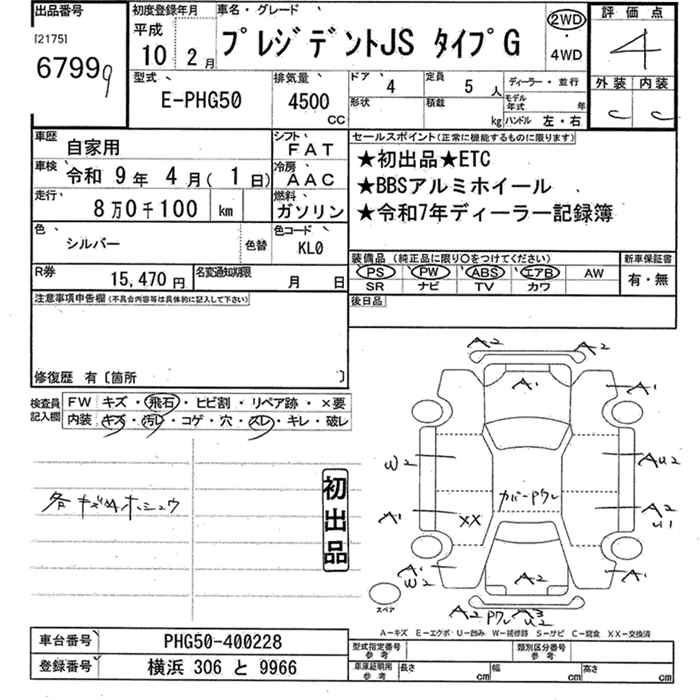 出品番号
[2175]
6799 9
初度登録年月
平成
10 2 月
車名・グレード
プレジデントJS タイプG
2WD
・
4WD
評価点
4
外装 内装
C C
型式
E-PHG50
排気量
4500
CC
ドア 4
形状
定員 5 人
積載 kg
ディーラー・並行
モデル年式 年
ハンドル 左・右
車歴 自家用
シフト FAT
車検 令和 9 年 4 月( 1 日)
冷房 AAC
走行 8 万 0 千 100 km
燃料 ガソリン
色 シルバー 色替
色コード KL0
R券 15,470 円
名変通知期限 月 日
セールスポイント(正常に機能するものに限ります)
★初出品★ETC
★BBSアルミホイール
★令和7年ディーラー記録簿
装備品 (純正品に限り○をつけてください) 新車保証書
PS PW ABS エアB AW 有・無
SR ナビ TV カワ
後日品
注意事項申告欄(不具合内容等は具体的に記入して下さい)
修復歴 有〔箇所 〕
検査員記入欄
FW キズ・飛石・ヒビ割・リペア跡・×要
内装 キズ・汚レ・コゲ・穴・スレ・キレ・破レ
各キズ凹ホシュウ
初出品
A2 A2
A1 A1
W2 AU2
カバーPワレ
A1 XX A2
U1
A1
W2 A2 A1
スペア
A2 Pワレ U3 A2
A-キズ E-エクボ U-凹み W-補修跡 S-サビ C-腐食 XX-交換済
車台番号 PHG50-400228
登録番号 横浜 306 と 9966
型式指定番号 参考
類別区分番号 参考
車庫証明用 参考 長さ cm 幅 cm 高さ cm